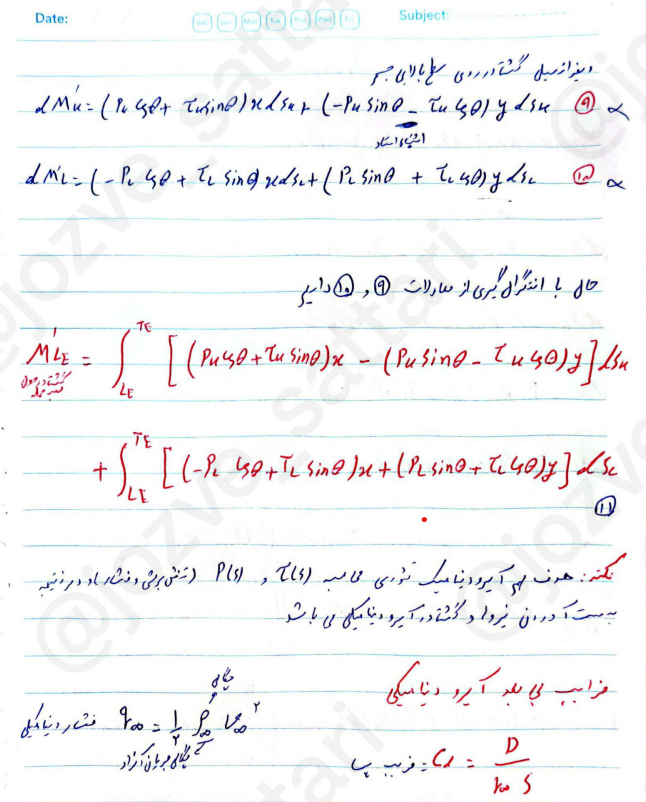 Date: Sat Sun Mon Tue Thu Wed Fri Subject:
گشتاور روی سطح بالایی جسم
dM'u = (Pu cosθ + τu sinθ) x dsu + (-Pu sinθ - τu cosθ) y dsu ⑨ α
اشتباه استاد
dM'L = (-PL cosθ + τL sinθ) x dsL + (PL sinθ + τL cosθ) y dsL ⑩ α
حال با انتگرال گیری از معادلات ⑨ و ⑩ داریم
M'LE = ∫LE^TE [(Pu cosθ + τu sinθ) x - (Pu sinθ - τu cosθ) y] dsu
گشتاور حول
لبه حمله
+ ∫LE^TE [(-PL cosθ + τL sinθ) x + (PL sinθ + τL cosθ) y] dsL
⑪
نکته: هدف مهم آیرودینامیک تئوری محاسبه τ(s) و P(s) (تنش برشی و فشار) و در نتیجه
بدست آوردن نیرو و گشتاور آیرودینامیکی می باشد
ضرایب بی بعد آیرو دینامیکی
چگالی
q∞ = 1/2 ρ∞ V∞² فشار دینامیکی
چگالی جریان آزاد
ضریب پسا: Cd = D / q∞ S
@jozve_sattari